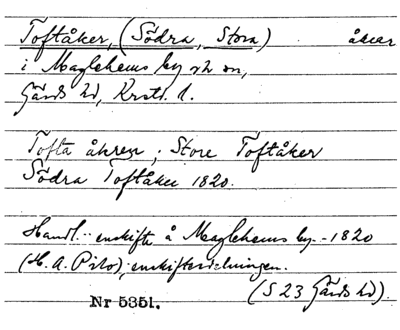 Toftåker, (Södra, Stora) åker
i Maglehems by o sn,
Gärds hd, Krst. l.
Tofta åkren; Store Toftåker
Södra Toftåker 1820.
Handl. enskifte å Maglehems by - 1820
(H. A. Pihlo); enskiftesdelningen.
(S 23 Gärds hd).
Nr 5351.